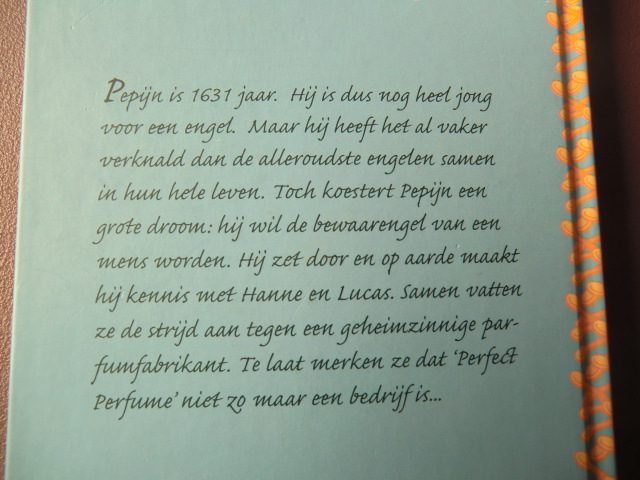 Pepijn is 1631 jaar. Hij is dus nog heel jong
voor een engel. Maar hij heeft het al vaker
verknald dan de alleroudste engelen samen
in hun hele leven. Toch koestert Pepijn een
grote droom: hij wil de bewaarengel van een
mens worden. Hij zet door en op aarde maakt
hij kennis met Hanne en Lucas. Samen vatten
ze de strijd aan tegen een geheimzinnige par-
fumfabrikant. Te laat merken ze dat ‘Perfect
Perfume’ niet zo maar een bedrijf is...